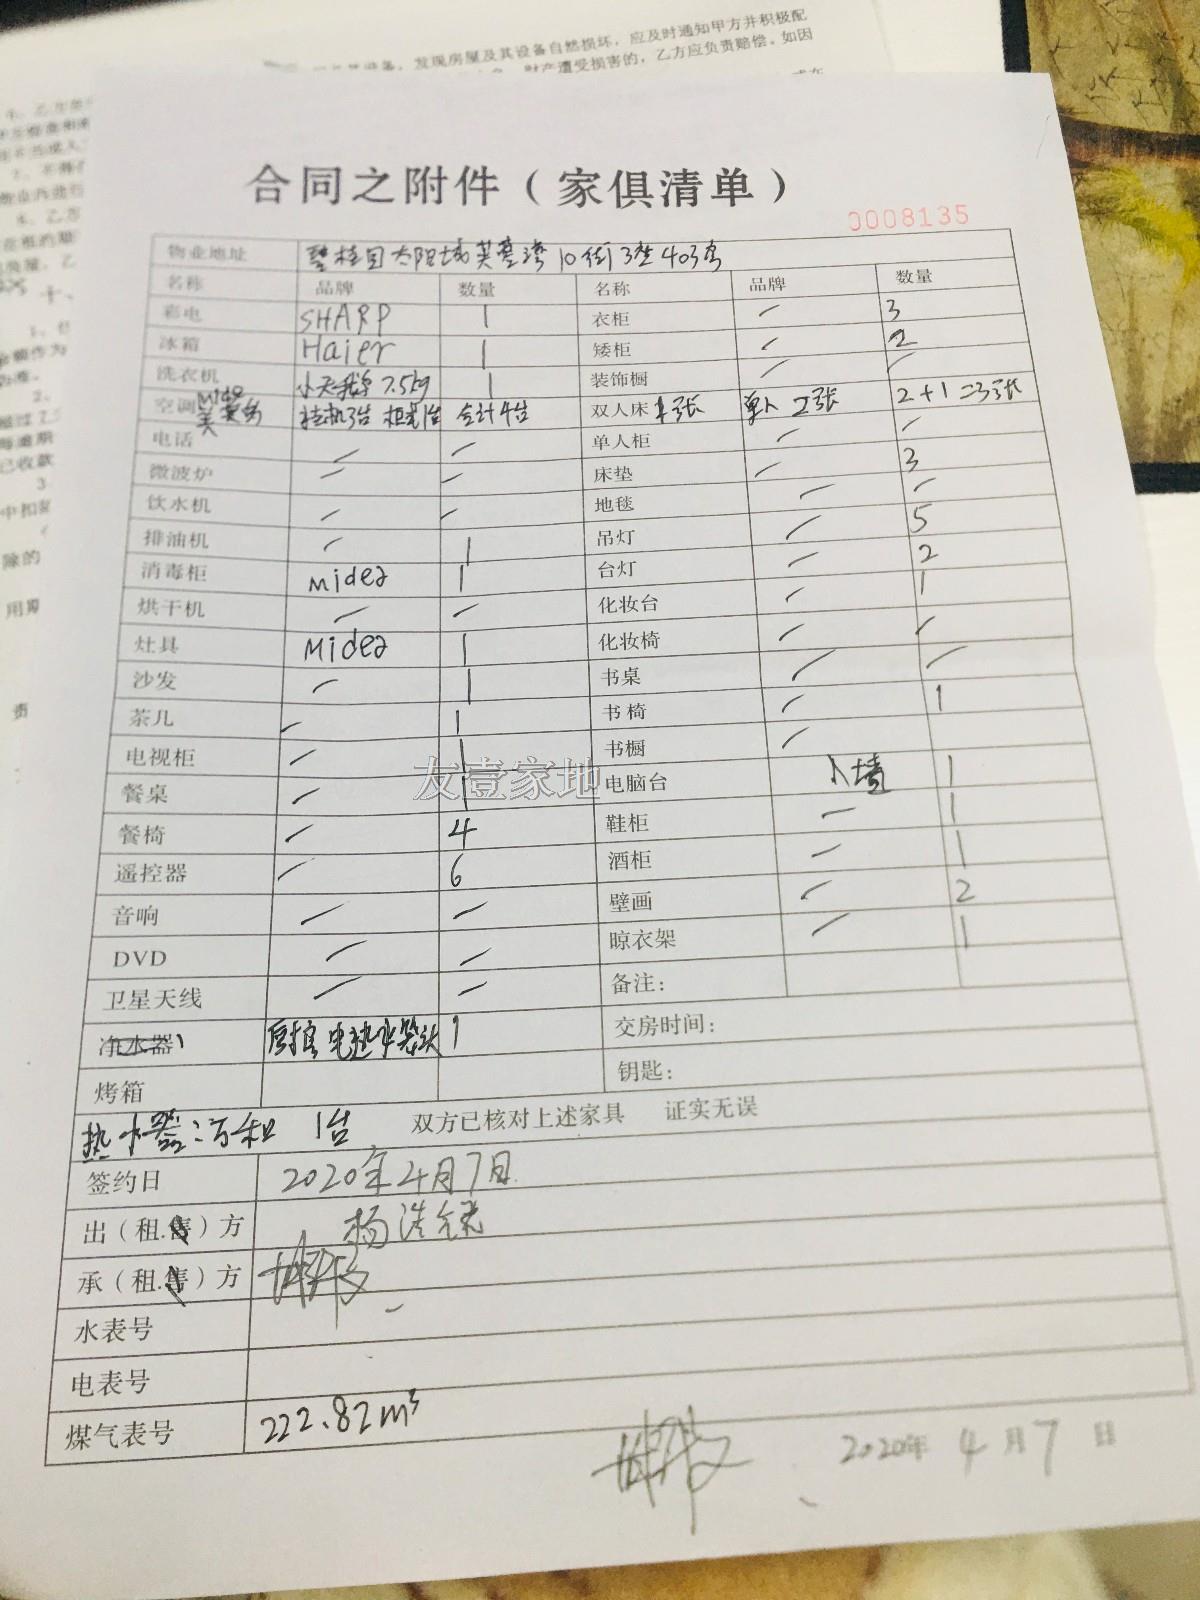 发现房屋及其设备自然损坏，应及时通知甲方并积极配
财产遭受损害的，乙方应负责赔偿。如因
合同之附件（家俱清单）
0008135
物业地址 碧桂园太阳城芙蓉湾10街3座403房
名称 品牌 数量 名称 品牌 数量
彩电 SHARP 1 衣柜 / 3
冰箱 Haier 1 矮柜 / 2
洗衣机 小天鹅 7.5kg 1 装饰橱 / /
空调 Mide 美 挂机3台 柜机1台 合计4台 双人床 1张 单人 2张 2+1=3张
电话 / / 单人柜 / /
微波炉 / / 床垫 / 3
饮水机 / / 地毯 / /
排油机 / 1 吊灯 / 5
消毒柜 Midea 1 台灯 / 2
烘干机 / / 化妆台 / 1
灶具 Midea 1 化妆椅 / /
沙发 / 1 书桌 / /
茶几 / 1 书椅 / 1
电视柜 / 1 书橱 /
餐桌 / 1 电脑台 入墙 1
餐椅 / 4 鞋柜 / 1
遥控器 / 6 酒柜 / 1
音响 / / 壁画 / 2
DVD / / 晾衣架 / 1
卫星天线 / / 备注：
净水器 厨房电热水 1 交房时间：
烤箱 钥匙：
热水器 1台 双方已核对上述家具 证实无误
签约日 2020年4月7日
出（租.售）方 杨浩
承（租.售）方
水表号
电表号
煤气表号 222.82m³
2020年 4月7日
友壹家地